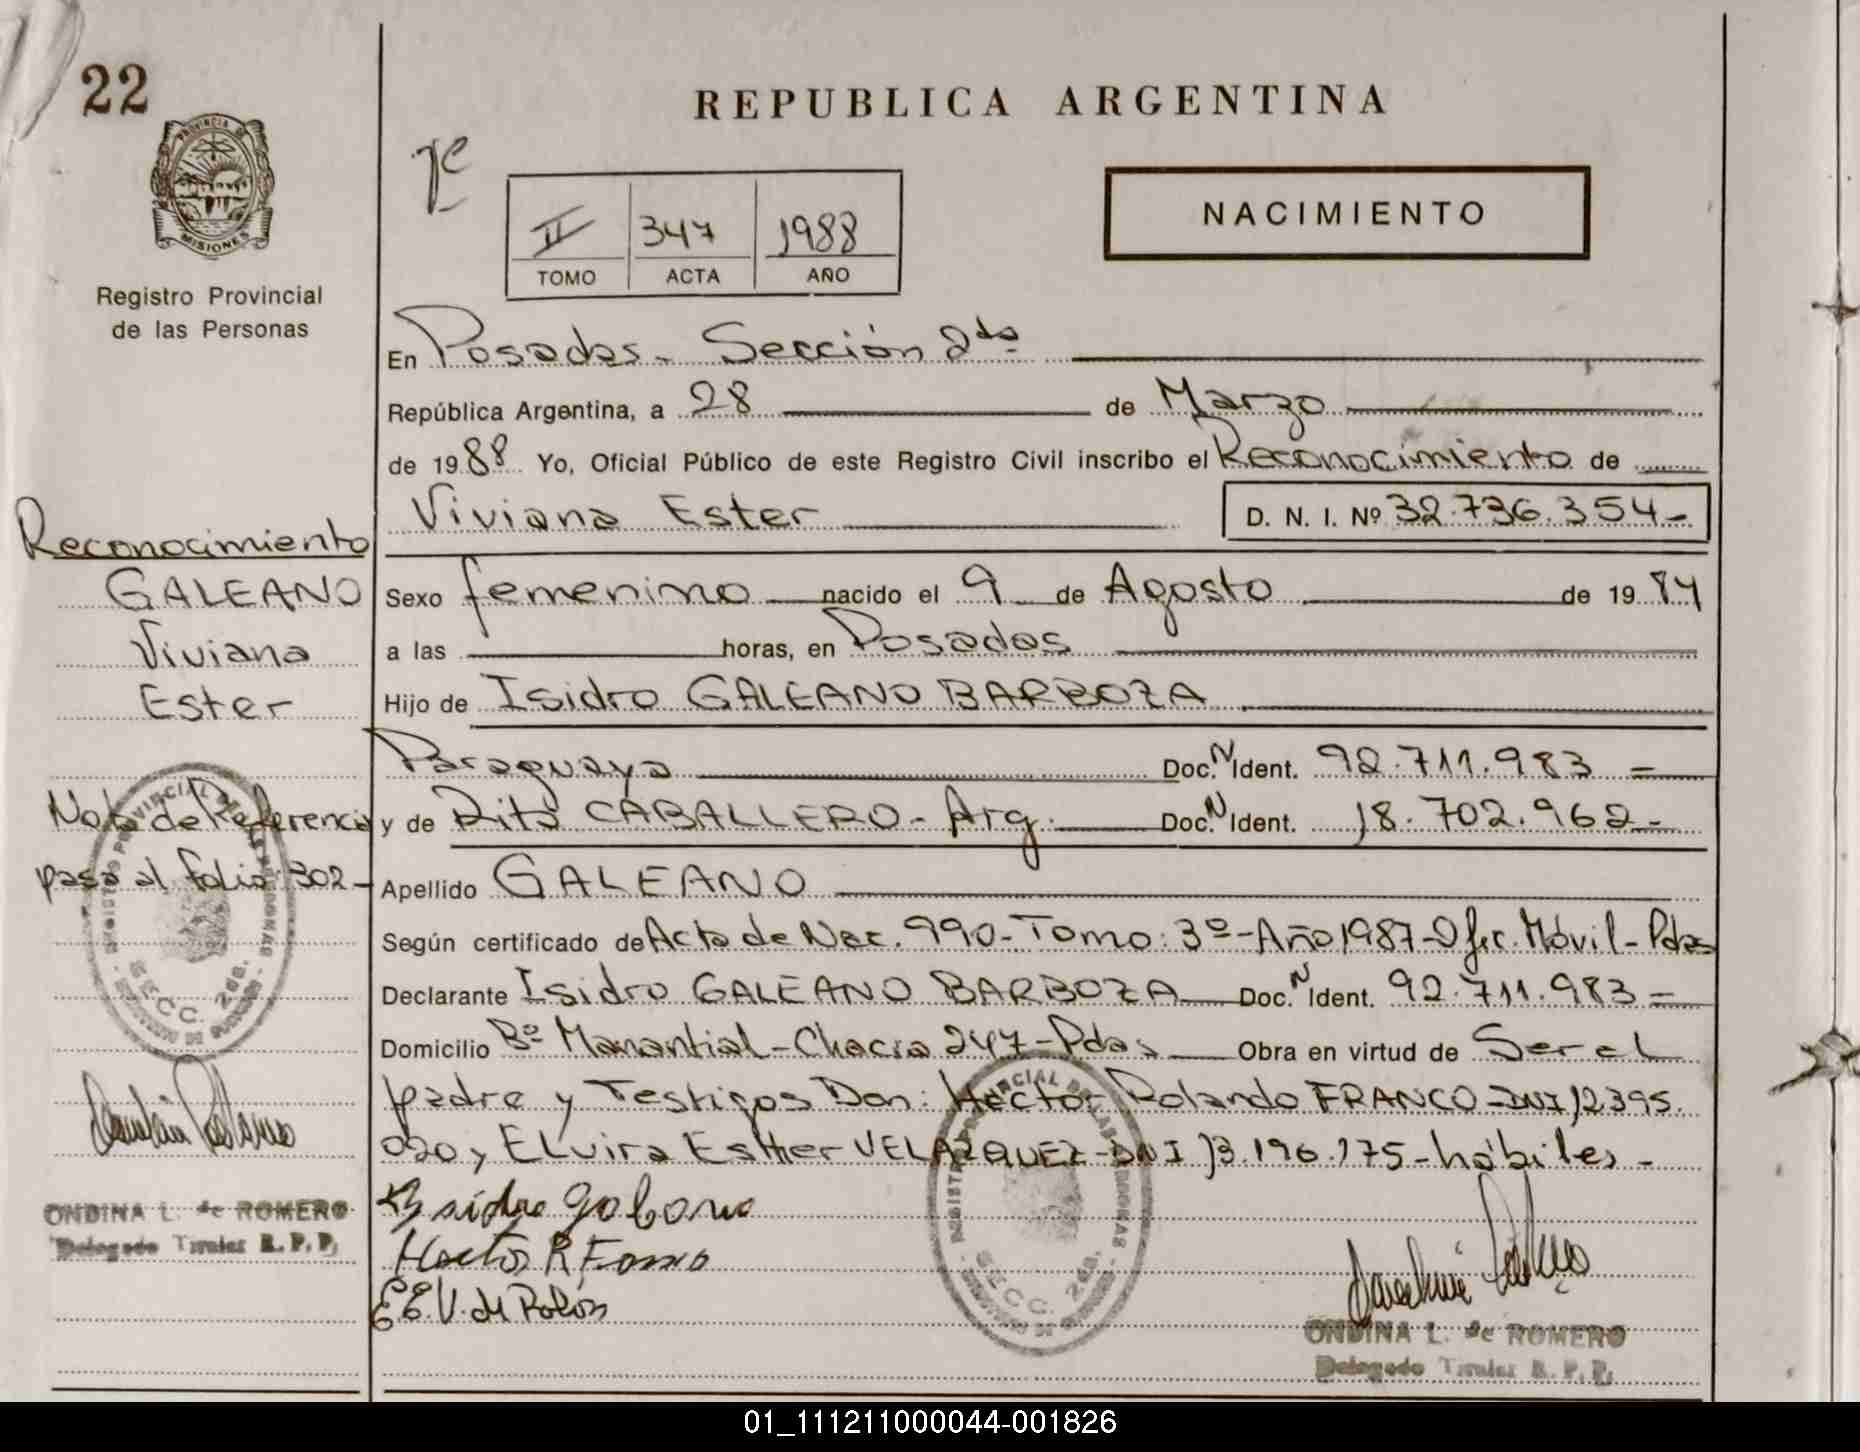 22
REPUBLICA ARGENTINA
PROVINCIA DE
MISIONES
Registro Provincial
de las Personas
II 347 1988
TOMO ACTA AÑO
NACIMIENTO
En Posadas - Sección 2da
República Argentina, a 28 de Marzo
de 1988 Yo, Oficial Público de este Registro Civil inscribo el Reconocimiento de
Viviana Ester D. N. I. Nº 32.736.354-
Reconocimiento
GALEANO
Viviana
Ester
Sexo femenino nacido el 9 de Agosto de 1984
a las horas, en Posadas
Hijo de Isidro GALEANO BARBOZA
Paraguaya Doc. N Ident. 92.711.983 =
y de Rita CABALLERO - Arg. Doc. N Ident. 18.702.962-
Nota de Referencia
pasa al folio 302-
Apellido GALEANO
Según certificado de Acta de Nac. 990-Tomo: 3º-Año 1987-Ofic. Móvil-Pdas
Declarante Isidro GALEANO BARBOZA Doc. N Ident. 92.711.983=
Domicilio Bº Manantial-Chacra 247-Pdas Obra en virtud de Ser el
padre y Testigos Don: Héctor Rolando FRANCO-DNI 12395.
020 y ELvira Esther VELAZQUEZ-DNI 13.196.175-hábiles-
SECC. 2da.
ONDINA L. de ROMERO
Delegado Titular R. P. P.
Isidro galeano
Hector R Franco
E E. V. de Rolón
SECC. 2da.
ONDINA L. de ROMERO
Delegado Titular R. P. P.
01_111211000044-001826